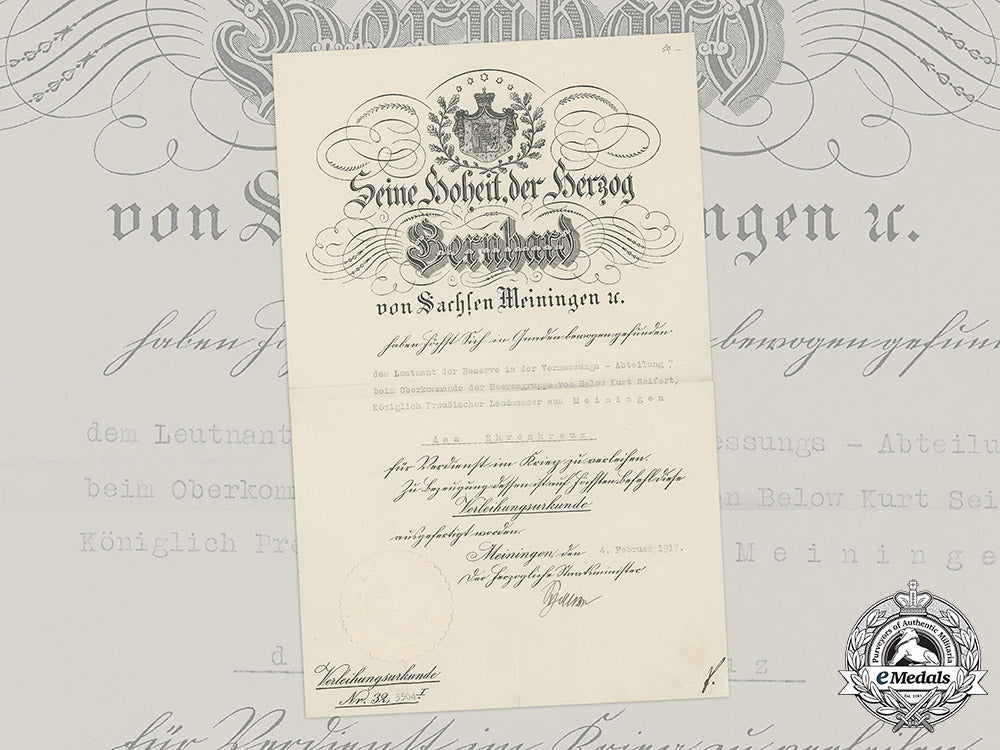 Seine Hoheit, der Herzog
Bernhard
von Sachsen Meiningen ꝛc.
haben Höchst Sich in Gnaden bewogen gefunden
dem Leutnant der Reserve in der Vermessungs - Abteilung 7
beim Oberkommando der Heeresgruppe von Below Kurt Seifert,
Königlich Preußischer Landmesser aus Meiningen
das Ehrenkreuz
für Verdienst im Krieg zu verleihen.
Zu Bezeugung dessen ist auf Höchsten Befehl diese
Verleihungsurkunde
ausgefertigt worden.
Meiningen, den 4. Februar 1917.
Der Herzogliche Staatsminister
Verleihungsurkunde
Nr. 32, 3504 I
Bernhard
von S
ngen ꝛc.
haben Hö
bewogen gefun
dem Leutnant
essungs - Abteilu
beim Oberkomm
on Below Kurt Sei
Königlich Pre
Meininge
d
z
für Verdienst im Krieg zu verleihen
Purveyors of Authentic Militaria
eMedals